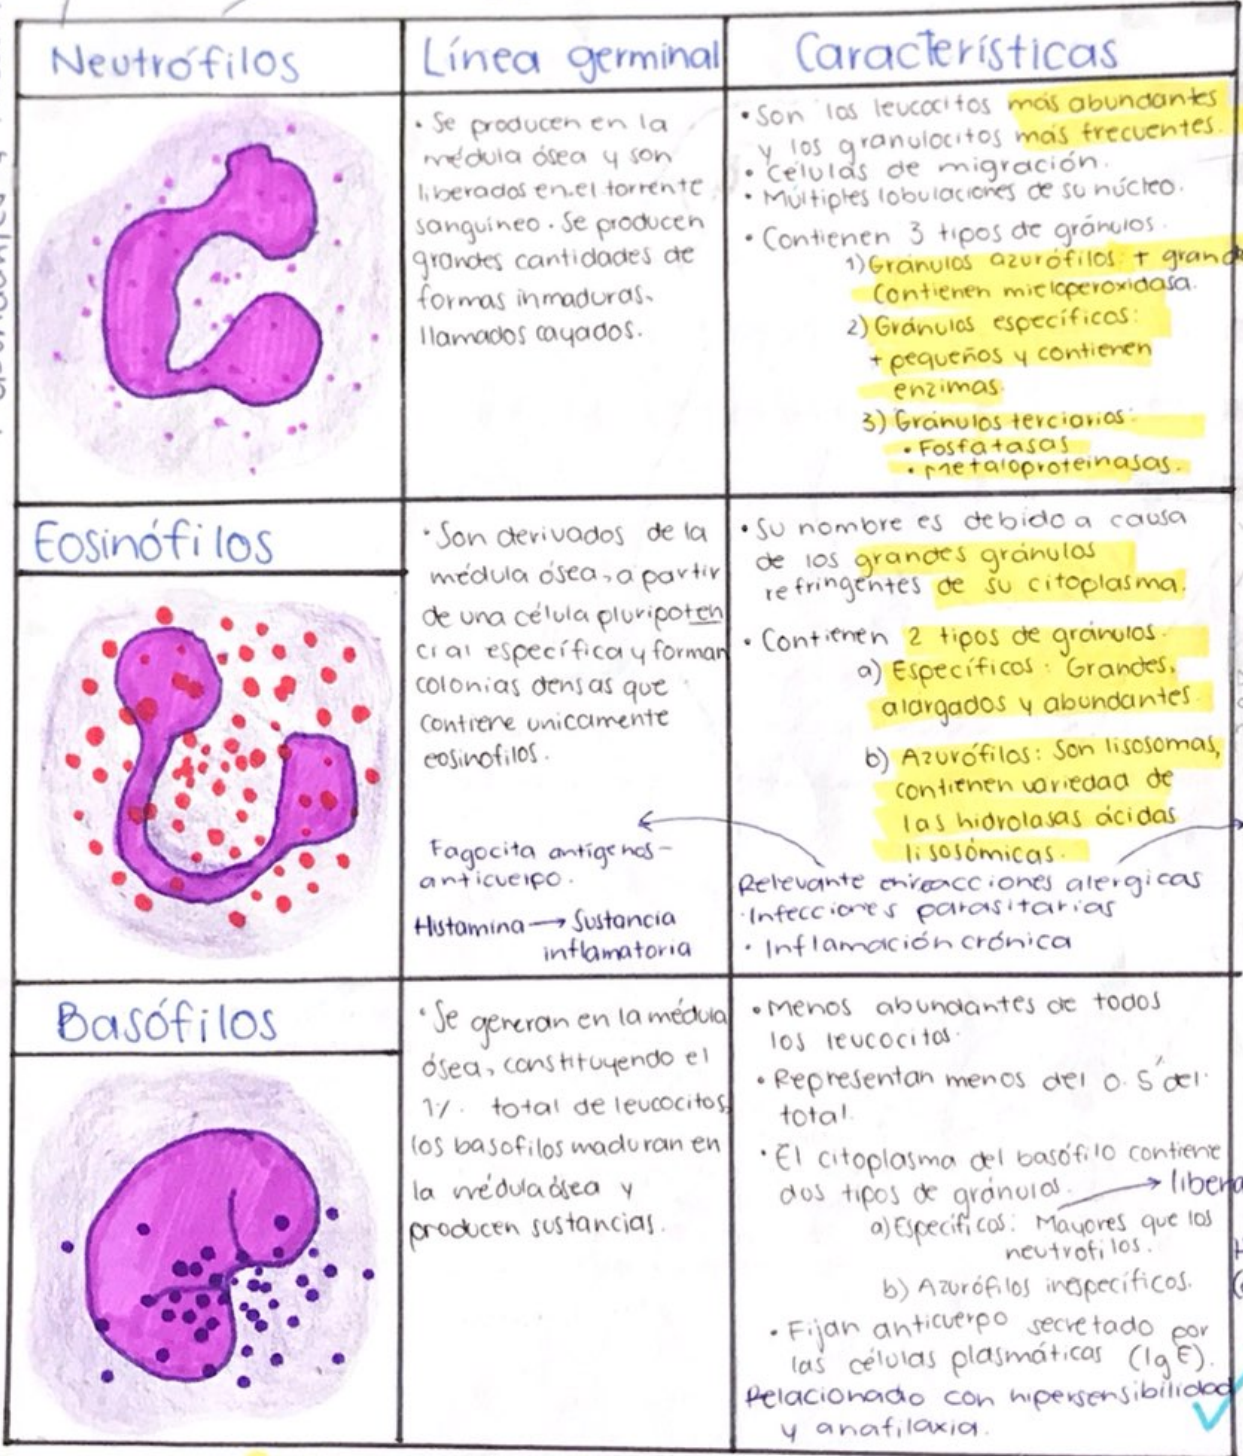 Neutrófilos
Línea germinal
Características
• Se producen en la
médula ósea y son
liberados en el torrente
sanguíneo. Se producen
grandes cantidades de
formas inmaduras,
llamados cayados.
• Son los leucocitos más abundantes
y los granulocitos más frecuentes.
• Células de migración.
• Múltiples lobulaciones de su núcleo.
• Contienen 3 tipos de gránulos.
1) Gránulos azurófilos: + grand
Contienen mieloperoxidasa.
2) Gránulos específicos:
+ pequeños y contienen
enzimas.
3) Gránulos terciarios:
• Fosfatasas
• Metaloproteinasas.
Eosinófilos
• Son derivados de la
médula ósea, a partir
de una célula pluripoten
cial específica y forman
colonias densas que
contiene unicamente
eosinofilos.
Fagocita antígenos-
anticuerpo.
Histamina → Sustancia
inflamatoria
• Su nombre es debido a causa
de los grandes gránulos
refringentes de su citoplasma.
• Contienen 2 tipos de gránulos.
a) Específicos: Grandes,
alargados y abundantes.
b) Azurófilos: Son lisosomas,
contienen variedad de
las hidrolasas ácidas
lisosómicas.
Relevante en reacciones alergicas
• Infecciones parasitarias
• Inflamación crónica
Basófilos
• Se generan en la médula
ósea, constituyendo el
1%. total de leucocitos,
los basofilos maduran en
la médula ósea y
producen sustancias.
• Menos abundantes de todos
los leucocitos.
• Representan menos del 0.5 del
total.
• El citoplasma del basófilo contiene
dos tipos de gránulos. → libera
a) Específicos: Mayores que los
neutrofilos.
b) Azurófilos inespecíficos.
• Fijan anticuerpo secretado por
las células plasmáticas (IgE).
Relacionado con hipersensibilidad
y anafilaxia.